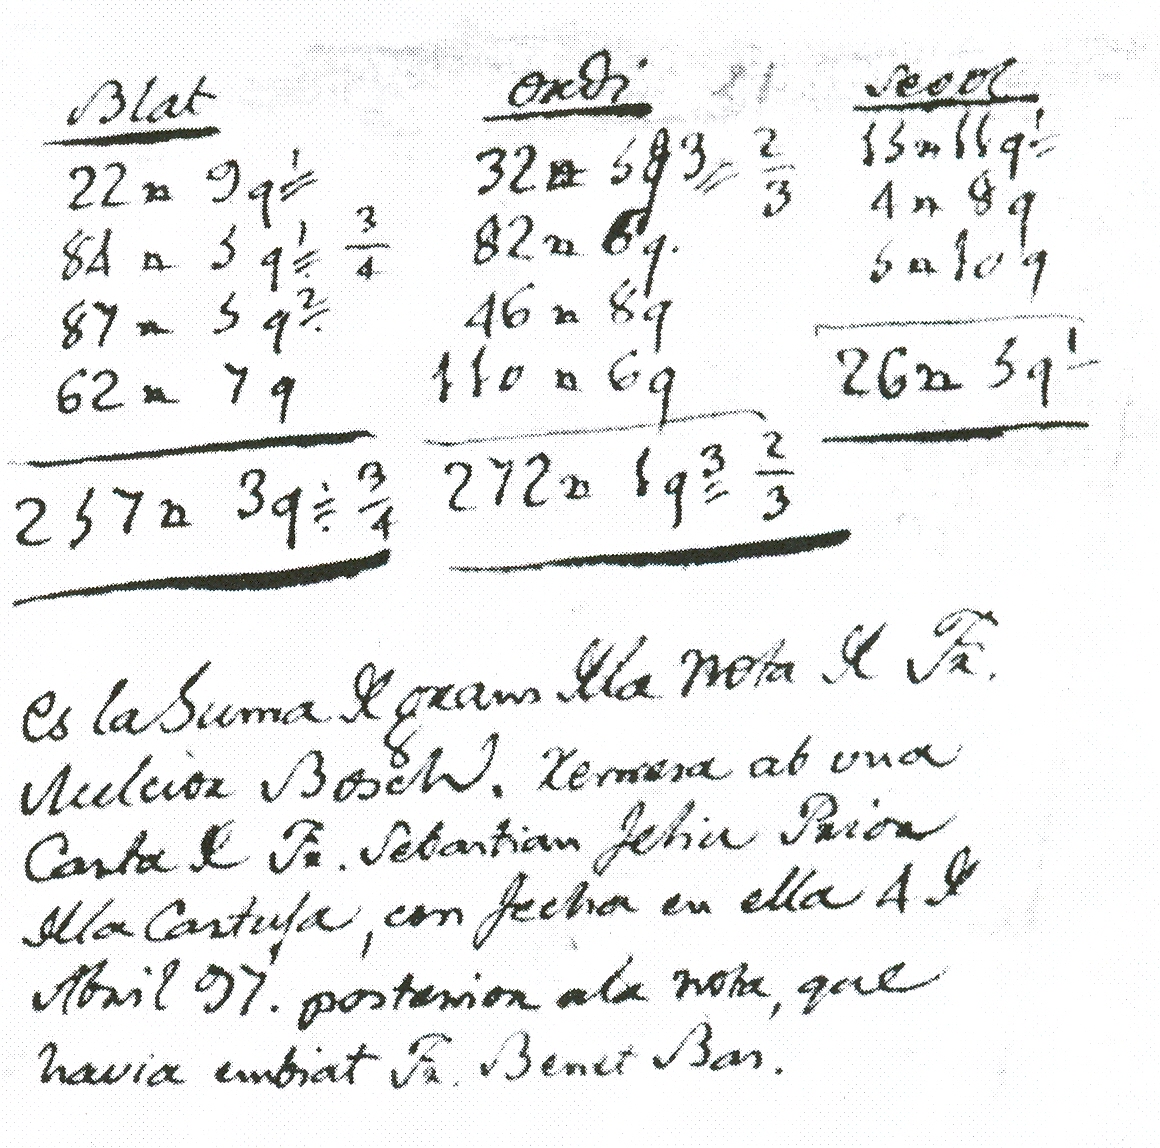 Blat
22 n 9 q 1
84 n 5 q 1 3/4
87 n 5 q 2
62 n 7 q
257 n 3 q ÷ 3/4
Ordi
32 n 5 q 3 2/3
82 n 6 q.
46 n 8 q
110 n 6 q
272 n 1 q 3 2/3
Segol
15 n 11 q 1
4 n 8 q
5 n 10 q
26 n 5 q 1
Es la Suma de grans della nota de Fr.
Melcior Bosch. Remesa ab una
Carta de Fr. Sebastian Feliu Prior
della Cartuja, con fecha en ella 4 de
Abril 97. posterior a la nota, que
havia embiat Fr. Benet Bas.